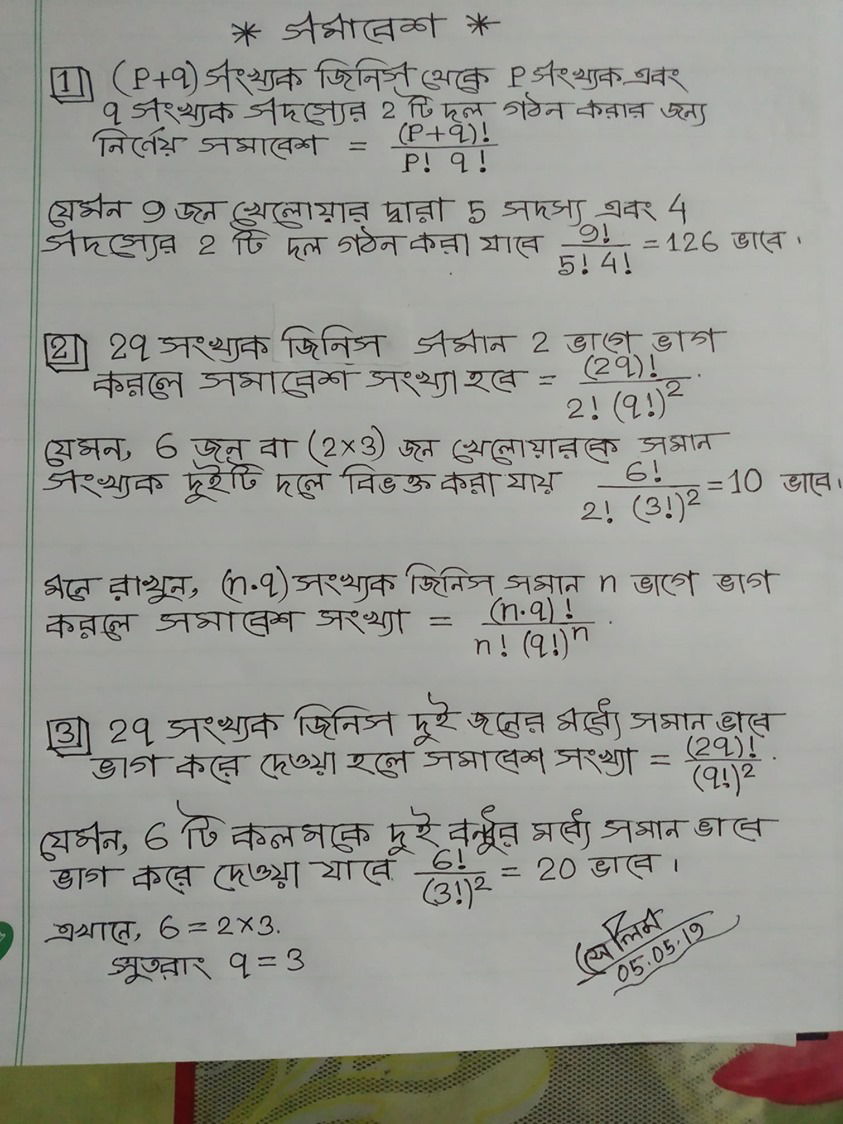 * সমাবেশ *
1 (P+q) সংখ্যক জিনিস থেকে P সংখ্যক এবং
q সংখ্যক সদস্যের 2 টি দল গঠন করার জন্য
নির্ণেয় সমাবেশ = (P+q)! / P! q!
যেমন 9 জন খেলোয়ার দ্বারা 5 সদস্য এবং 4
সদস্যের 2 টি দল গঠন করা যাবে 9! / 5! 4! = 126 ভাবে।
2 2q সংখ্যক জিনিস সমান 2 ভাগে ভাগ
করলে সমাবেশ সংখ্যা হবে = (2q)! / 2! (q!)².
যেমন, 6 জন বা (2×3) জন খেলোয়ারকে সমান
সংখ্যক দুইটি দলে বিভক্ত করা যায় 6! / 2! (3!)² = 10 ভাবে।
মনে রাখুন, (n·q) সংখ্যক জিনিস সমান n ভাগে ভাগ
করলে সমাবেশ সংখ্যা = (n·q)! / n! (q!)ⁿ.
3 2q সংখ্যক জিনিস দুই জনের মধ্যে সমান ভাবে
ভাগ করে দেওয়া হলে সমাবেশ সংখ্যা = (2q)! / (q!)².
যেমন, 6 টি কলমকে দুই বন্ধুর মধ্যে সমান ভাবে
ভাগ করে দেওয়া যাবে 6! / (3!)² = 20 ভাবে।
এখানে, 6 = 2×3.
সুতরাং q = 3
সেলিম
05.05.19